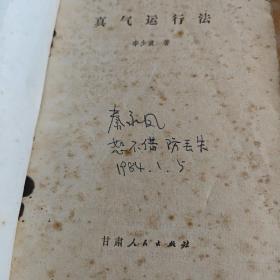 真气运行法
李少波 著
秦永凤
恕不借 防丢失
1984.1.5
甘肃人民出版社